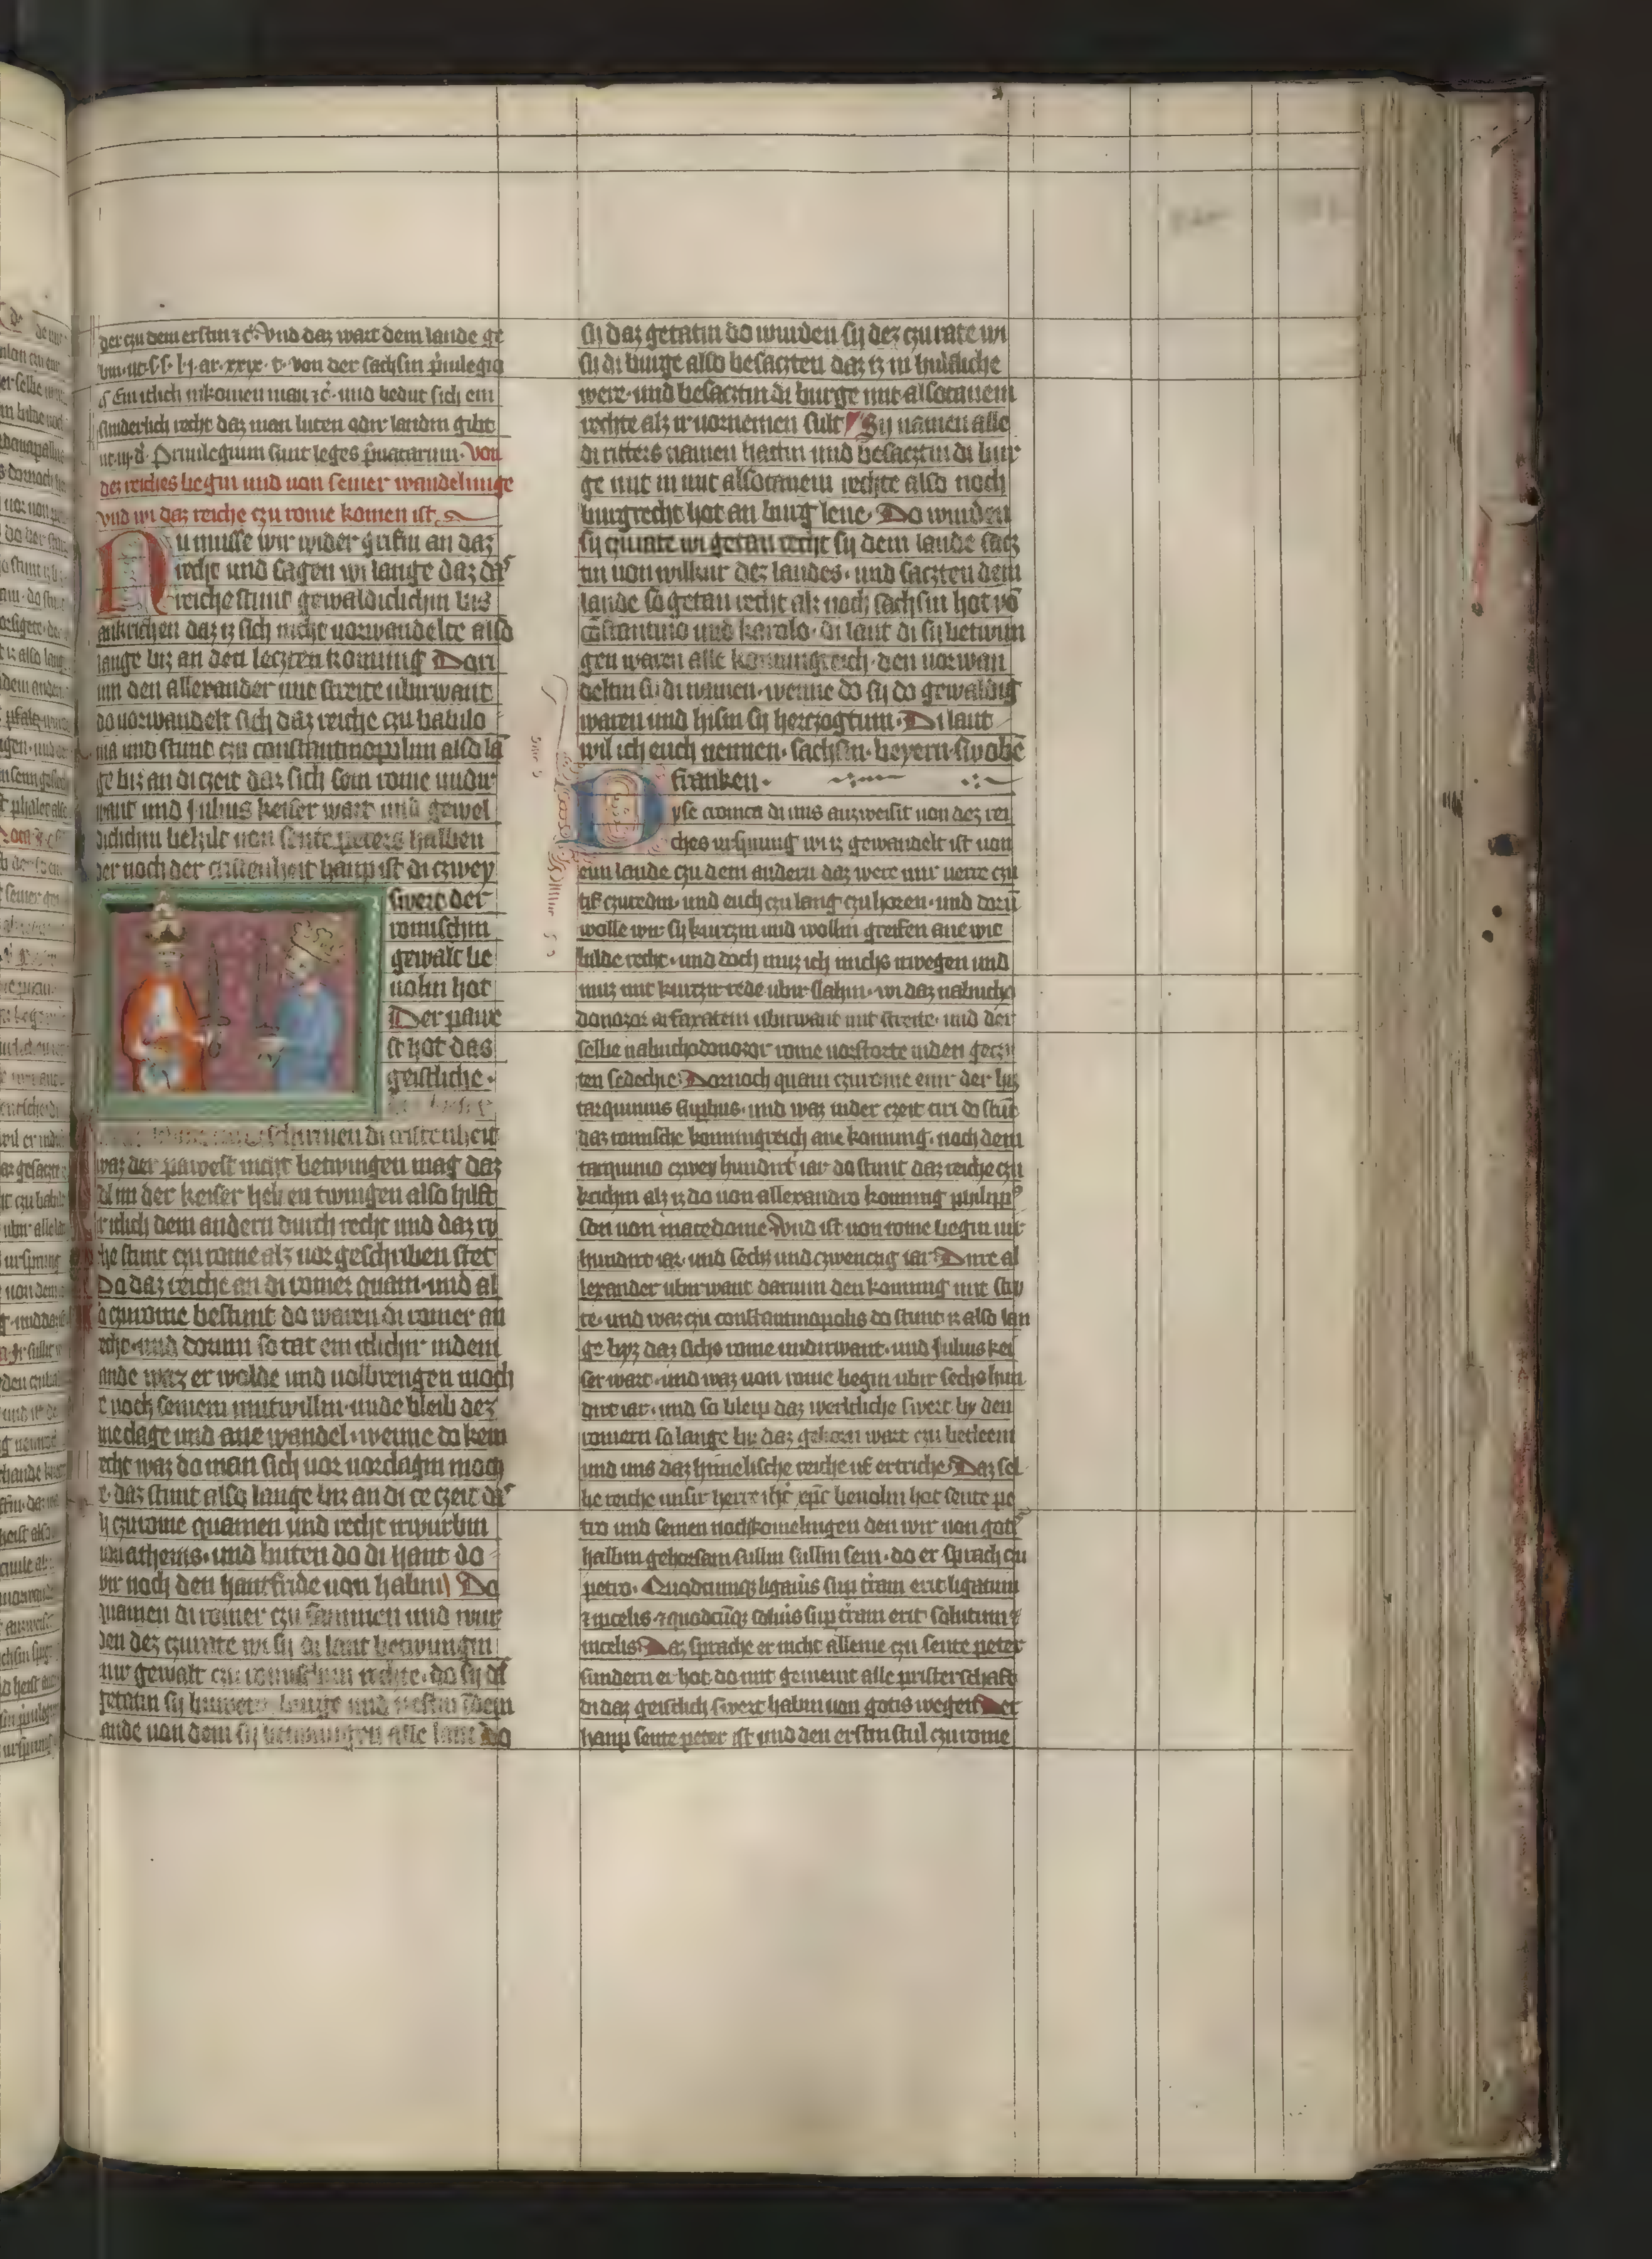 der czu dem erstin ⁊ c̄. Vnd daz wart dem lande ge
von der sachsin
itlich inkomen man ⁊ c̄. und bedut sich ein
sunderlich recht daz man luten odir landin gibt
Priuilegium sunt leges p̄uatarum. Von
dez reiches begin und uon seiner wandelunge
Vnd wi daz reiche czu rome komen ist
Nu musse wir wider grifin an daz
recht und sagen wi lange daz daʳ
reiche stunt gewaldiclichin bis
daz iz sich nicht uorwandelte also
lange biz an den leczten konning Dari
um den allexander mit streite ubirwant
do uorwandelt sich daz reiche czu babilo
nia und stunt czu constantinopulim also lā
ge biz an di czeit daz sich sein rome undir
want und Julius keiser wart und gewel
diclichin behilt uon sente peters halben
der noch der cristenheit haup ist di czwey
swert der
romischin
gewalt be
uolin hot
Der pawe
st hot das
geistliche.
schirmen di cristenheit
waz der pawest nicht betwingen mag daz
sal im der keiser helfen twingen also hilft
itlich dem andern durch recht und daz ry
che stunt czu rome alz uor geschriben stet
Do daz reiche an di romer quam. und al
so czu rome bestunt do waren di romer an
recht. und dorum so tat ein itlichir indem
lande waz er wolde und uolbrengen moch
te noch seinem mutwillin. unde bleib dez
ane clage und ane wandel. wenne do kein
recht waz do man sich uor uordagin moch
te. daz stunt also lange biz an di czeit daʳ
sy czu rome quamen und recht irwurbin
uon athenis. und buten do di hant do
wir noch den hantfride uon habin Do
quamen di romer czu sammen und wur
den dez czu rate wi sy di lant betwungin
mit gewalt czu romischim rechte. do sy daʳ
getatin sy buweten burge und uestin in dem
lande uon dem sy betwungen alle lant Do
sy daz getatin do wurden sy dez czu rate wi
sy di burge also besaczten daz iz in hulfliche
were. und besacztin di burge mit alsotanem
rechte alz ir uornemen sult Sy namen alle
di ritters namen hattin und besacztin di bur
ge mit in mit alsotanem rechte also noch
burgrecht hot an burg lene. Do wurden
sy czu rate wi getan recht sy dem lande sacz
tin uon willkur dez landes. und saczten dem
lande so getan recht alz noch sachsin hot vō
cōstantino und karolo. di lant di sy betwun
gen waren alle konningreich. den uorwan
deltin si di namen. wenne do sy do gewaldig
waren und hisin sy herczogtum. Di lant
wil ich euch nennen. sachsin. beyern. swobē
franken.
Dyse cronica di uns auzweisit uon dez rei
ches ursprung wi iz gewandelt ist uon
eim lande czu dem andern daz were mir uerre czu
tif czuredin. und euch czu lang czu horen. und dorū
wolle wir sy kurczin und wollin greifen ane wic
bilde recht. und doch muz ich michs irwegen und
muz mit kurczir rede ubir slahin. wi daz nabucho
donozor arfaxatem ubirwant mit streite. und der
selbe nabuchodonozor rome uorstorte inden geczi
ten sedechie. Dornoch quam czu rome eine der hiz
tarquinius supbus. und waz inder czeit ciri do stūt
daz romische konningreich ane konning. noch dem
tarquinio czwey hundirt iar do stunt daz reiche czu
krichin alz iz do uon allexandro konning philippˢ
son uon macedonie Vnd ist uon rome begin uir
hundirt iar. und sechz und czwenczig iar. Dirre al
lexander ubirwant darium den konning mit stri
te. und waz czu constantinopolis do stunt iz also lan
ge byz daz sichs rome undirwant. und Julius kei
ser wart. und waz uon rome begin ubir sechs hun
dirt iar. und so bleip daz werltliche swert by den
romern so lange biz daz geborn wart czu betleem
und uns daz himelische reiche uf ertriche. Daz sel
be reiche unsir herre ih̄c xp̄c beuolin hot sente pe
tro und seinen nochkomelingen den wir uon gotˢ
halbin gehorsam sullin sullin sein. do er sprach czu
petro. Quodcumqꝫ ligaūis sup t̄ram erit ligatum
⁊ incelis ⁊ quodcūqꝫ soluis sup t̄ram erit solutum ⁊
incelis. Daz sprache er nicht alleine czu sente peter
sundern er hot do mit gemeint alle pristerschaft
di daz geistlich swert habin uon gotis wegen Der
haup sente peter ist und den erstin stul czu rome